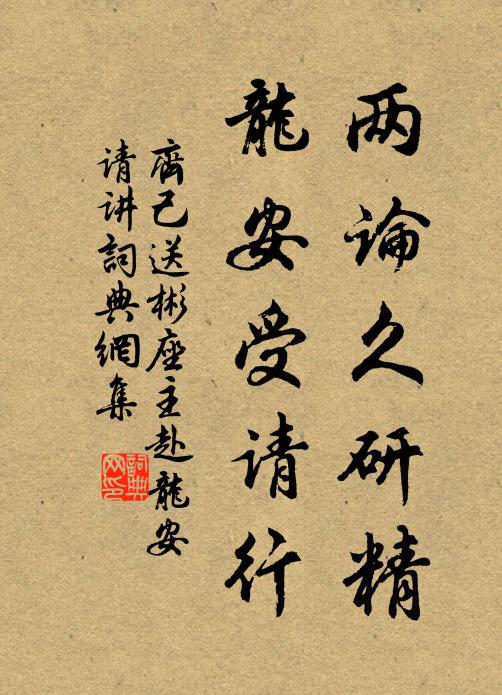 两論久研精
龍安受请行
齊己送彬座主赴龍安
请讲詞典網集
詞典
网印